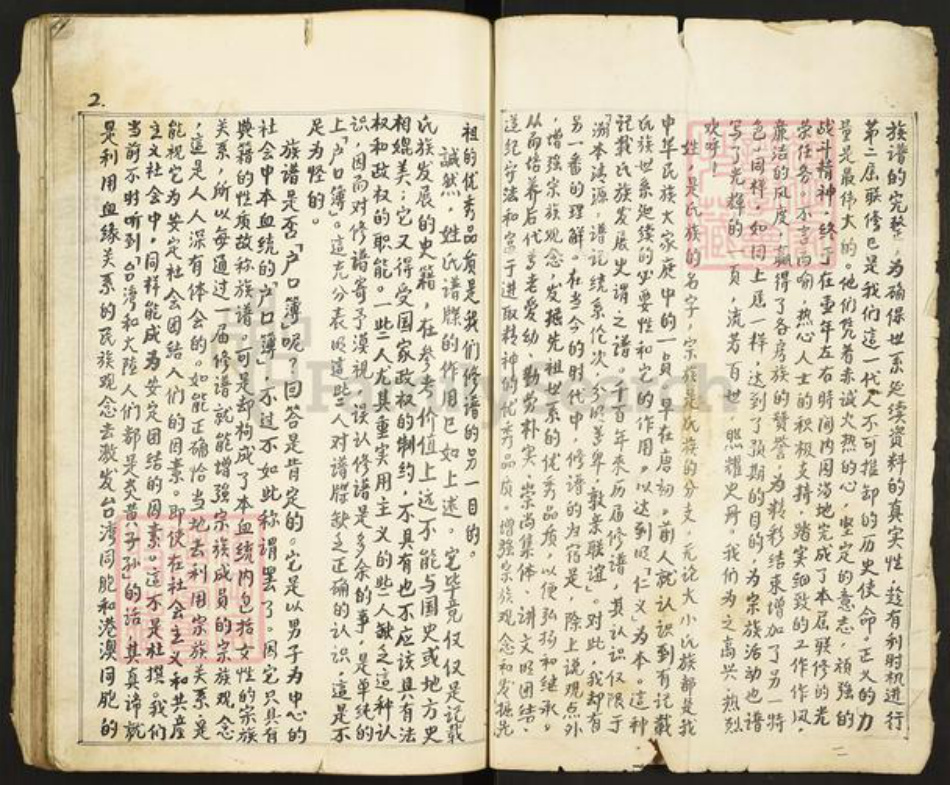 族谱的完整，为确保世系延续资料的真实性，趁有利时机进行
第二届联修已是我们这一代人不可推卸的历史使命。正义的力
量是最伟大的。他们凭着赤诚火热的心，坚定的意志，顽强的
战斗精神，终于在壹年左右时间内圆满地完成了本届联修的光
荣任务。不言而喻，热心人士的积极支持，踏实细致的工作作风，
廉洁的风度，赢得了各房族的赞誉，为精彩结束增加了另一特
色，同样，如同上届一样，达到了预期的目的，为宗族活动也谱
写了光辉的一页，流芳百世，照耀史册。我们为之高兴，热烈
欢呼！
姓，是氏族的名字，宗族是氏族的分支，无论大小氏族都是我
中华民族大家庭中的一员。早在唐初，前人就认识到有记载
氏族世系延续的必要性和它的作用，以达到明「仁义」为本。这种
记载氏族发展史谓之谱。千百年来，历届修谱，其认识仅限于
「溯本清源，谱记统系伦次，分明尊卑，敦亲联谊」。对此，我却有
另一番的理解。在当今的时代中，修谱的内容是，除上说观点外
，增强宗族观念，发掘先祖世系的优秀品质，以便弘扬和继承。
从而培养后代尊老爱幼、勤劳朴实、崇尚集体、讲文明团结、
遵纪守法和富于进取精神的优秀品质。增强宗族观念和发掘先
二
2.
祖的优秀品质是我们修谱的另一目的。
诚然，姓氏谱牒的作用已如上述。它毕竟仅仅是记载
氏族发展的史籍，在参考价值上远不能与国史或地方史
相媲美；它又得受国家政权的制约，不具有也不应该具有法
权和政权的职能。一些人尤其重实用主义的些人缺乏这种认
识，因而对修谱寄予漠视，误认修谱是多余的事，是单纯的
上「户口簿」。这充分表明这些人对谱牒缺乏正确的认识，这是不
足为怪的。
族谱是否「户口簿」呢？回答是肯定的。它是以男子为中心的
社会中本血统的「户口簿」，不过不如此称谓罢了。因它只具有
典籍的性质故称族谱，可是却构成了本血统内包括女性的宗族
关系，所以每通过一届修谱就能增强宗族成员的宗族观念
，这是人人深有体会的。如能正确恰当地去利用宗族关系是
能视它为安定社会团结人们的因素。即使在社会主义和共产
主义社会中，同样能成为安定团结的因素。这不是杜撰。我们
当前不时听到「台湾和大陆人们都是炎黄子孙」的话，其真谛就
是利用血缘关系的民族观念去激发台湾同胞和港澳同胞的
FamilySearch